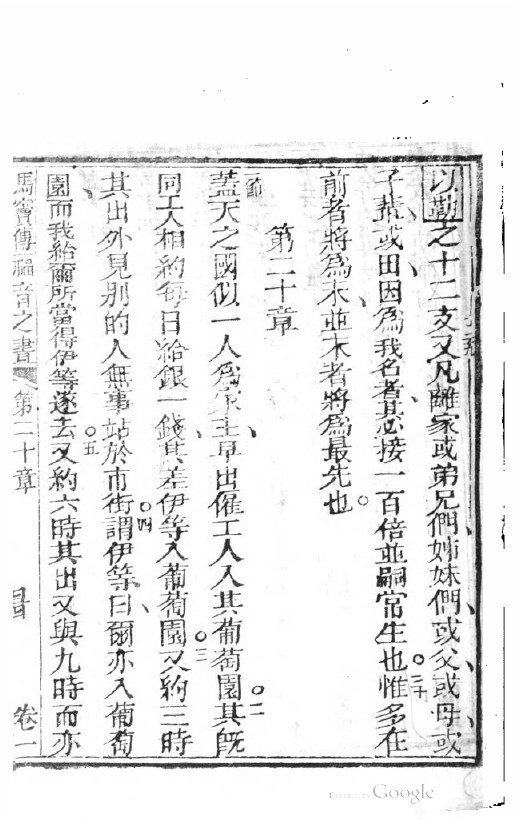 以勒之十二支又凡離家或弟兄們姊妹們或父或母或
子輩或田因為我名者其必接一百倍並嗣常生也○三十惟多在
前者將為末並末者將為最先也○
第二十章
一節
蓋天之國似一人為家主早出僱工人入其葡萄園○二其旣
同工人相約每日給銀一錢其差伊等入葡萄園○三又約三時
其出外見別的人無事站於市街○四謂伊等曰爾亦入葡萄
園而我給爾所當得伊等遂去○五又約六時其出又與九時而亦
馬竇傳福音之書 第二十章 卷一
Digitized by Google